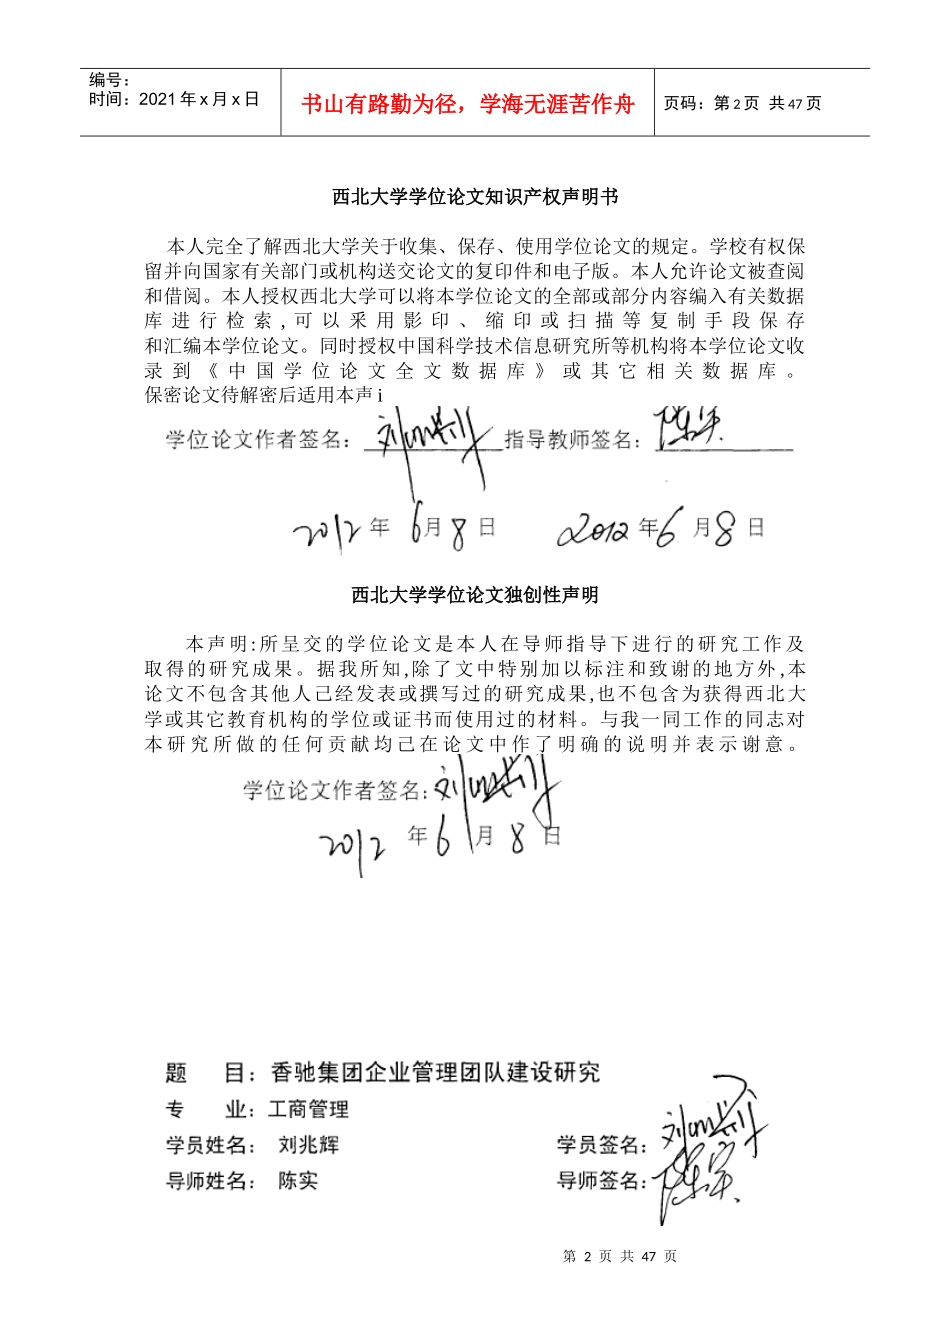 编号：
时间：2021年x月x日
书山有路勤为径，学海无涯苦作舟
页码：第2页 共47页
西北大学学位论文知识产权声明书
本人完全了解西北大学关于收集、保存、使用学位论文的规定。学校有权保
留并向国家有关部门或机构送交论文的复印件和电子版。本人允许论文被查阅
和借阅。本人授权西北大学可以将本学位论文的全部或部分内容编入有关数据
库进行检索,可以釆用影印、缩印或扫描等复制手段保存
和汇编本学位论文。同时授权中国科学技术信息研究所等机构将本学位论文收
录到《中国学位论文全文数据库》或其它相关数据库。
保密论文待解密后适用本声i
学位论文作者签名： 指导教师签名：陈实
2012年6月8日 2012年6月8日
西北大学学位论文独创性声明
本声明:所呈交的学位论文是本人在导师指导下进行的研究工作及
取得的研究成果。据我所知,除了文中特别加以标注和致谢的地方外,本
论文不包含其他人己经发表或撰写过的研究成果,也不包含为获得西北大
学或其它教育机构的学位或证书而使用过的材料。与我一同工作的同志对
本研究所做的任何贡献均己在论文中作了明确的说明并表示谢意。
学位论文作者签名：
2012年6月8日
题 目：香驰集团企业管理团队建设研究
专 业：工商管理
学员姓名： 刘兆辉 学员签名：
导师姓名： 陈实 导师签名：陈实
第 2 页 共 47 页